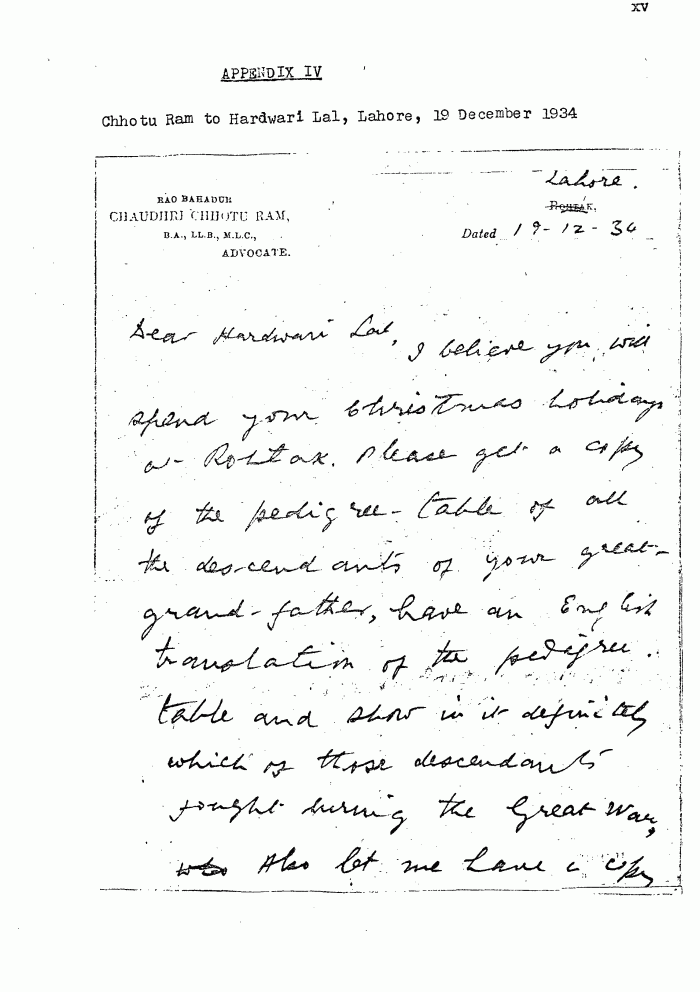 XV
APPENDIX IV
Chhotu Ram to Hardwari Lal, Lahore, 19 December 1934
RAO BAHADUR
CHAUDHRI CHHOTU RAM,
B.A., LL.B., M.L.C.,
ADVOCATE.
Lahore.
ROHTAK.
Dated 19-12-34
Dear Hardwari Lal,
I believe you will
spend your Christmas holidays
at Rohtak. Please get a copy
of the pedigree-table of all
the descendants of your great-
grand-father, have an English
translation of the pedigree.
table and show in it definitely
which of those descendants
fought during the Great War,
who Also let me have a copy